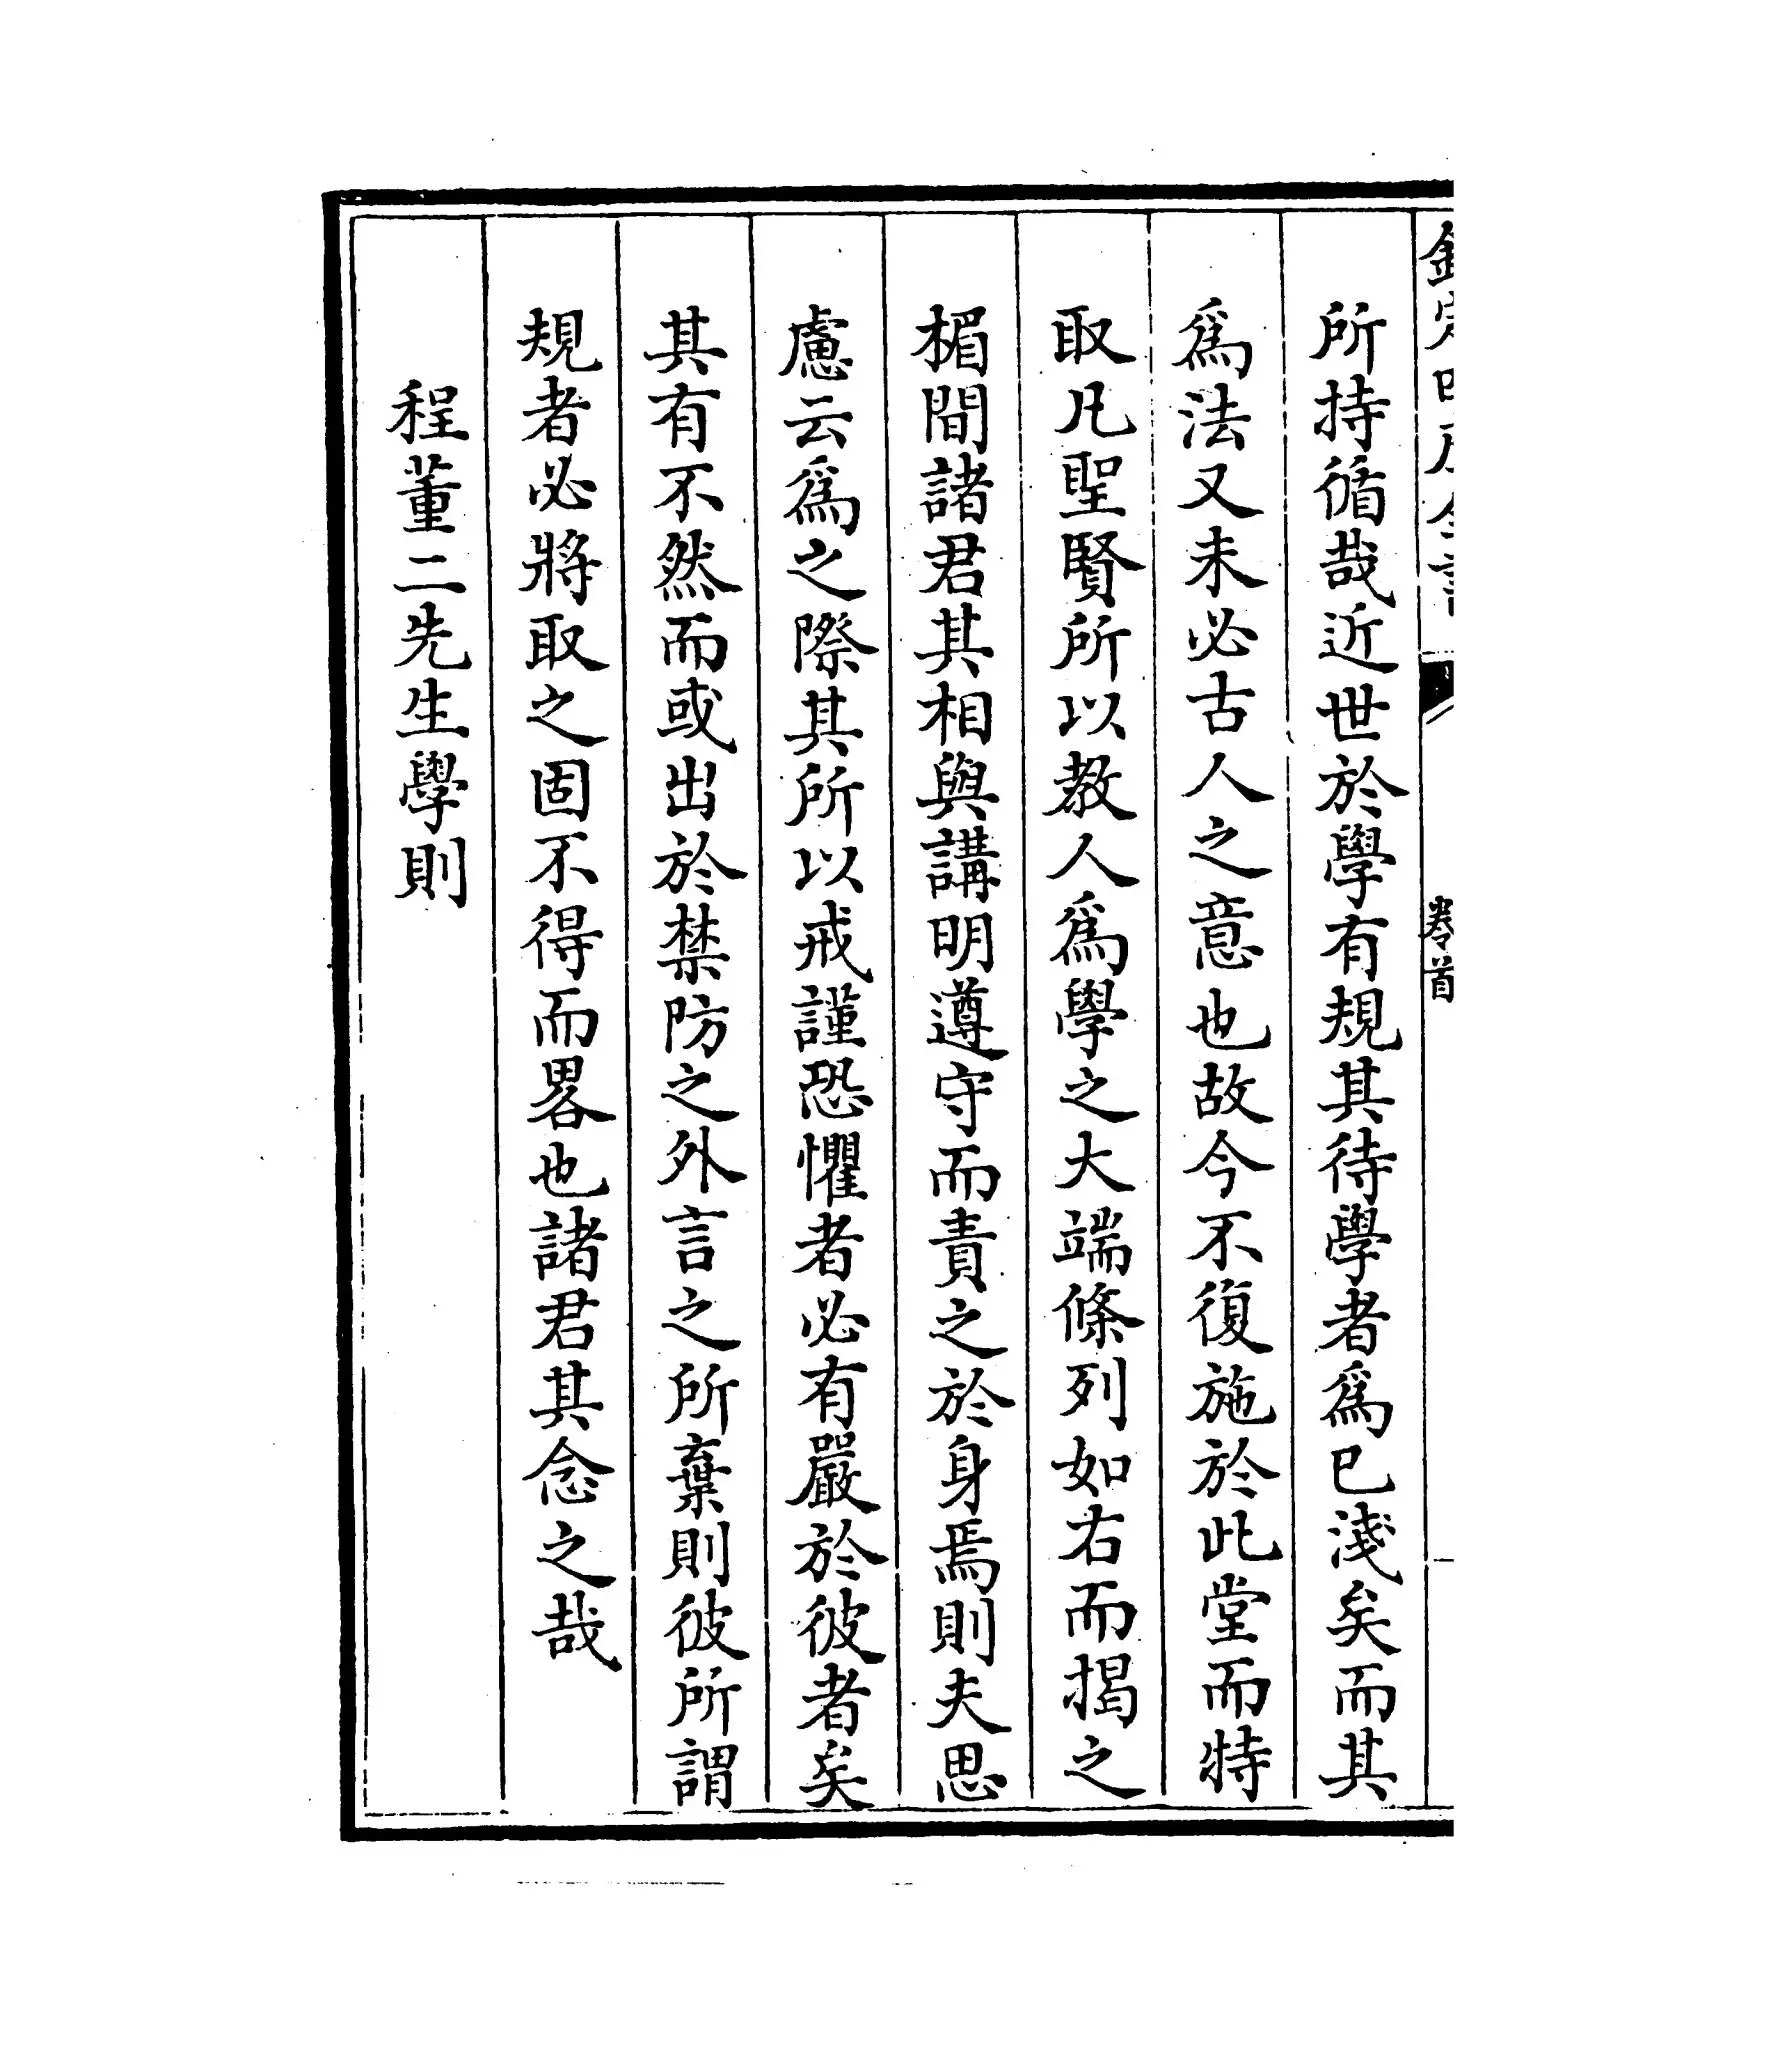 欽定四庫全書
卷首
所持循哉近世於學有規其待學者爲已淺矣而其
爲法又未必古人之意也故今不復施於此堂而特
取凡聖賢所以教人爲學之大端條列如右而揭之
楣間諸君其相與講明遵守而責之於身焉則夫思
慮云爲之際其所以戒謹恐懼者必有嚴於彼者矣
其有不然而或出於禁防之外言之所棄則彼所謂
規者必將取之固不得而畧也諸君其念之哉
程董二先生學則